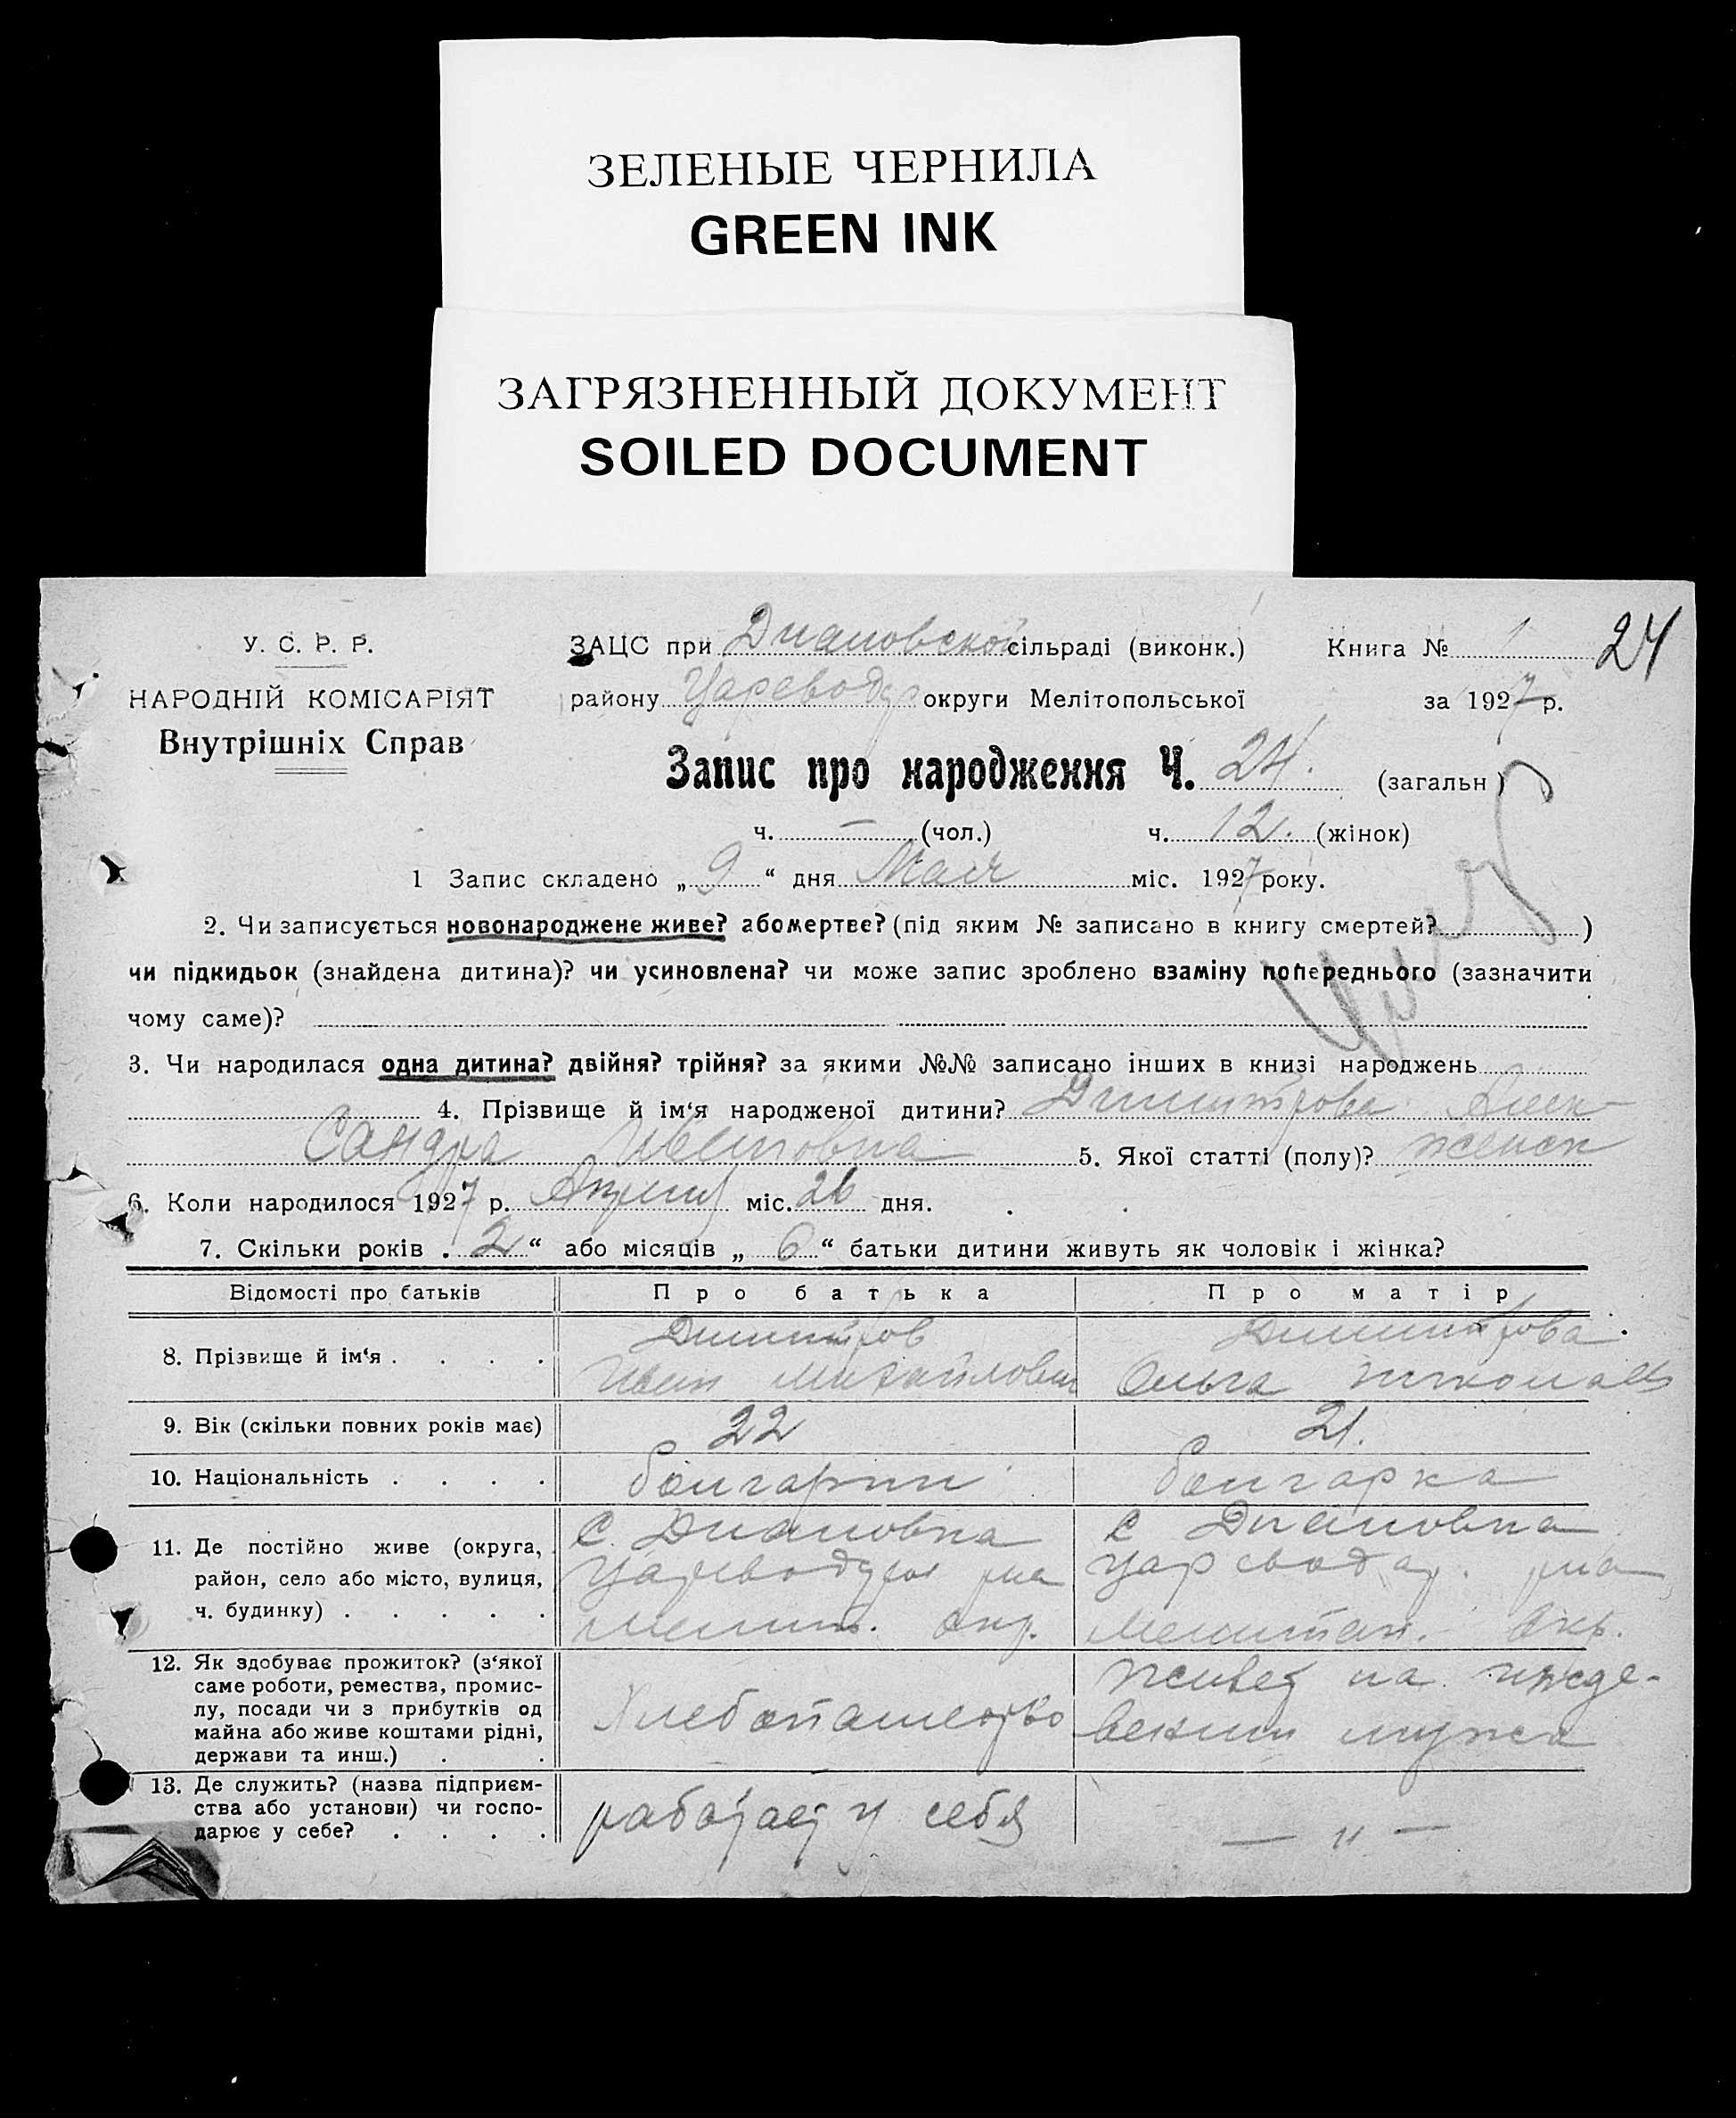 ЗЕЛЕНЫЕ ЧЕРНИЛА
GREEN INK
ЗАГРЯЗНЕННЫЙ ДОКУМЕНТ
SOILED DOCUMENT
У. С. Р. Р.
НАРОДНІЙ КОМІСАРІЯТ
Внутрішніх Справ
ЗАЦС при Диановской сільраді (виконк.) Книга № 1 24
району Царевод округи Мелітопольської за 1927 р.
Запис про народження Ч. 24. (загальн )
ч. — (чол.) ч. 12. (жінок)
1 Запис складено „ 9 “ дня Мая міс. 1927 року.
2. Чи записується новонароджене живе? або мертве? (під яким № записано в книгу смертей? )
чи підкидьок (знайдена дитина)? чи усиновлена? чи може запис зроблено взаміну попереднього (зазначити
чому саме)?
3. Чи народилася одна дитина? двійня? трійня? за якими №№ записано інших в книзі народжень
4. Прізвище й ім‘я народженої дитини? Димитрова Алек-
сандра Ивановна 5. Якої статті (полу)? женск
6. Коли народилося 1927 р. міс. 26 дня.
7. Скільки років „ 2 “ або місяців „ 6 “ батьки дитини живуть як чоловік і жінка?
Відомості про батьків Про батька Про матір
8. Прізвище й ім‘я . . . . Димитров Димитрова
Иван Михайлович Ольга
9. Вік (скільки повних років має) 22 21.
10. Національність . . . . болгарин болгарка
11. Де постійно живе (округа, с. Диановка с Диановка
район, село або місто, вулиця, рна рна
ч. будинку) . . . . . Мелит. окр. Мелитоп. Окр.
12. Як здобуває прожиток? (з‘якої
саме роботи, ремества, промис-
лу, посади чи з прибутків од
майна або живе коштами рідні,
держави та инш.) . .
Хлебопашество
живет на ижде-
вении мужа
13. Де служить? (назва підприєм-
ства або установи) чи госпо-
дарює у себе? . . . .
работает у себя
— " —